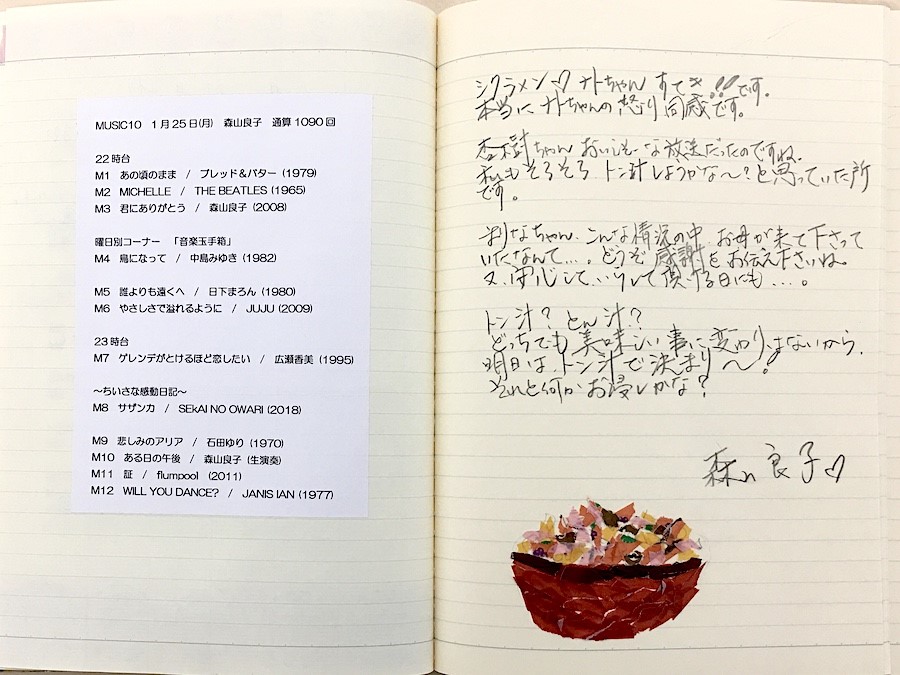 MUSIC10 1月25日(月) 森山良子 通算1090回
22時台
M1 あの頃のまま / ブレッド&バター (1979)
M2 MICHELLE / THE BEATLES (1965)
M3 君にありがとう / 森山良子 (2008)
曜日別コーナー 「音楽玉手箱」
M4 鳥になって / 中島みゆき (1982)
M5 誰よりも遠くへ / 日下まろん (1980)
M6 やさしさで溢れるように / JUJU (2009)
23時台
M7 ゲレンデがとけるほど恋したい / 広瀬香美 (1995)
～ちいさな感動日記～
M8 サザンカ / SEKAI NO OWARI (2018)
M9 悲しみのアリア / 石田ゆり (1970)
M10 ある日の午後 / 森山良子 (生演奏)
M11 証 / flumpool (2011)
M12 WILL YOU DANCE? / JANIS IAN (1977)
シクラメン♡ ナトちゃん すてき!!です。
本当に ナトちゃんの 怒り 同感です。
杏樹ちゃん おいしそーな放送だったのですね。
私も そろそろ トン汁しようかな〜?と思っていた所
です。
まりなちゃん、こんな情況の中、お母が来て下さって
いたなんて...。どうぞ 感謝を お伝え下さいね。
又、安心して、いらして頂ける日にも....。
トン汁? とん汁?
どっちでも 美味しい事に変わりはないから、
明日は、トン汁で決まり〜!
それと何かお浸しかな?
森山良子♡